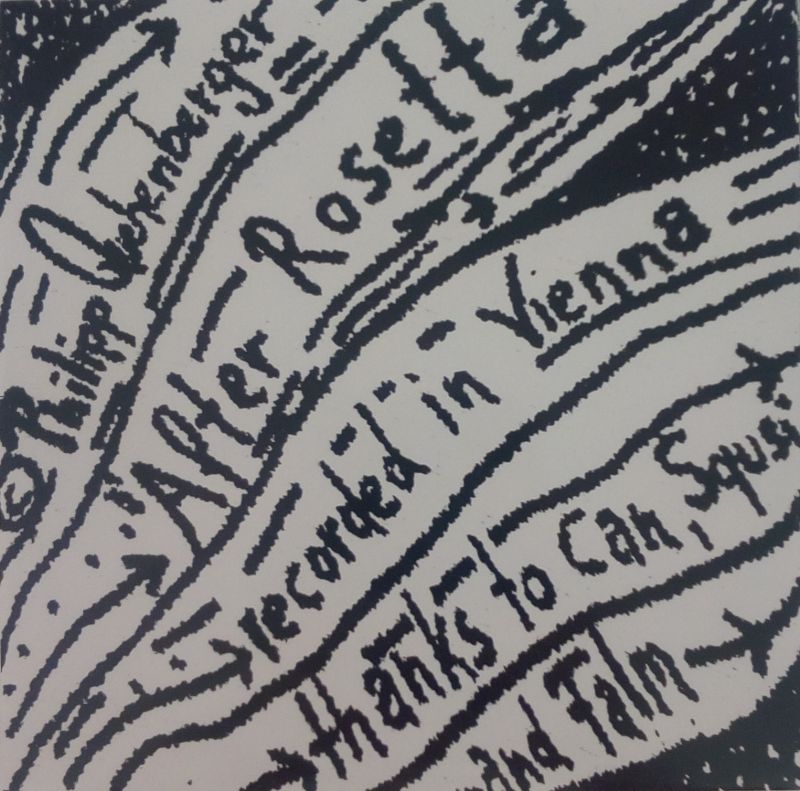 © Philipp Quehenberger
"After Rosetta
recorded in Vienna
thanks to Can, Squsi
and Falm